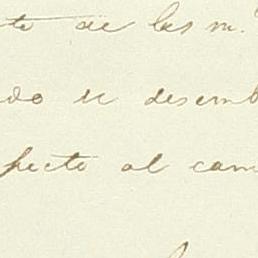 te de las m.
do de desemb
pecto al cam